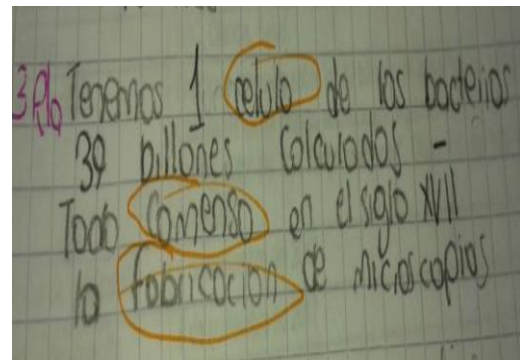 3 Rta Tenemos 1 celula de las bacterias
39 billones calculados -
Todo comenso en el siglo XVII
la fabricacion de microscopios